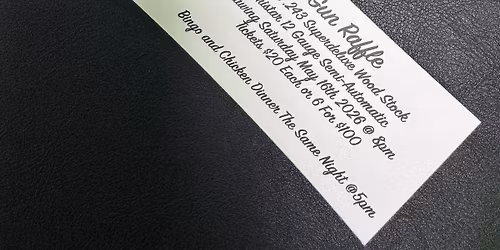 Gun Raffle
.243 Superdeluxe Wood Stock
12 Gauge Semi-Automatic
Saturday May 16th 2026 @ 8pm
Tickets $20 Each or 6 For $100
Bingo and Chicken Dinner The Same Night @5pm